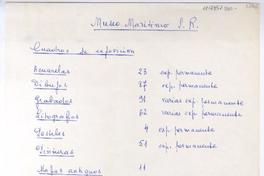 Museo Marítimo S.R.
Cuadros de exposicion
Acuarelas 23 exp. permanente
Dibujos 87 exp. permanente
Grabados 91 varias exp. permanente
Litografias 62 varias exp. permanente
Pasteles 4 exp. permanente
Pinturas 51 exp. permanente
Mapas antiguos 11